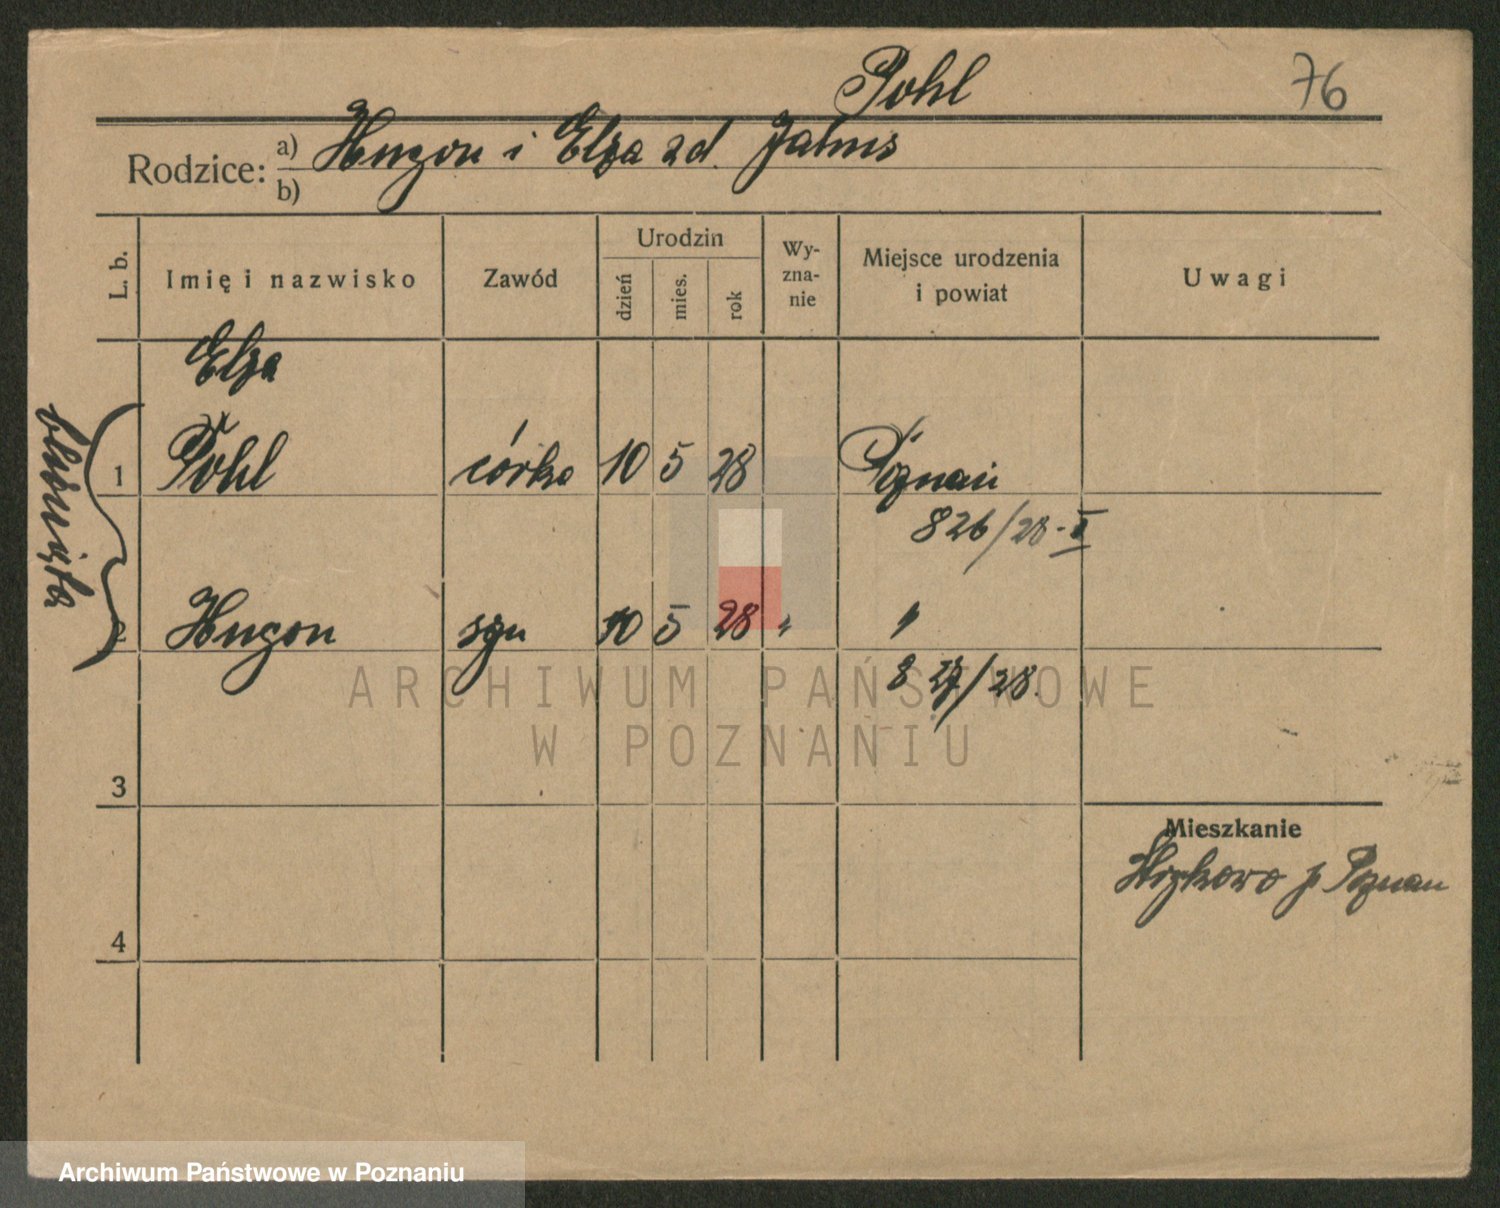 Pohl
76
Rodzice: a) Hugon i Elza zd. Jahns
b)
L. b.
Imię i nazwisko
Zawód
Urodzin
dzień
mies.
rok
Wy-
zna-
nie
Miejsce urodzenia
i powiat
Uwagi
bliźnięta
Elza
1 Pohl córka 10 5 28 Poznań
826/28-II
2 Hugon syn 10 5 28 " "
827/28.
3
Mieszkanie
p Poznań
4
ARCHIWUM PAŃSTWOWE
W POZNANIU
Archiwum Państwowe w Poznaniu